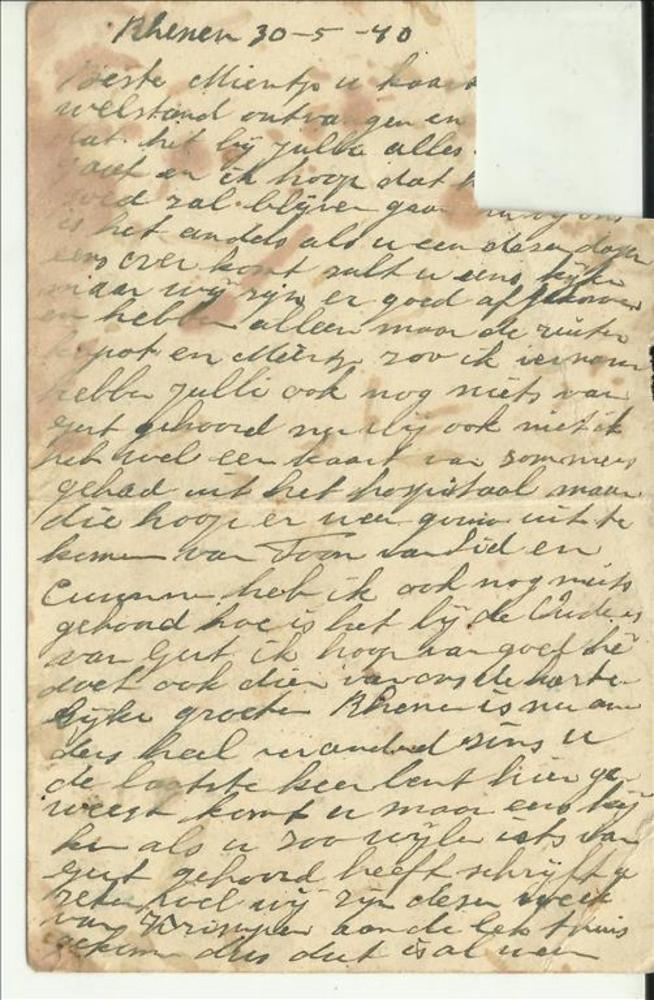 Rhenen 30-5-40
Beste Mientje u kaart
welstand ontvangen en
dat het bij jullie alles
goed en ik hoop dat
goed zal blijven gaan bij ons
is het anders als u een dezer dagen
eens over komt zult u eens kijken
maar wij zijn er goed af gekomen
en hebben alleen maar de ruiten
kapot en Mientje zoo ik vernam
hebben jullie ook nog niets van
Gert gehoord nu wij ook niet ik
heb wel een kaart van Sommers
gehad uit het hospitaal maar
die hoop er weer gauw uit te
komen van Toon van Lid en
heb ik ook nog niets
gehoord hoe is het bij de Ouders
van Gert ik hoop van goed hé
doet ook dien van ons de harte
lijke groeten Rhenen is nu an
ders heel veranderd sins u
de laatste keer bent hier ge
weest komt u maar eens kij
ken als u zoo wijlen iets van
Gert gehoord heeft schrijft u
zeker wel wij zijn deze week
van Krimpen aan de Lek thuis
gekomen dus dat is al weer